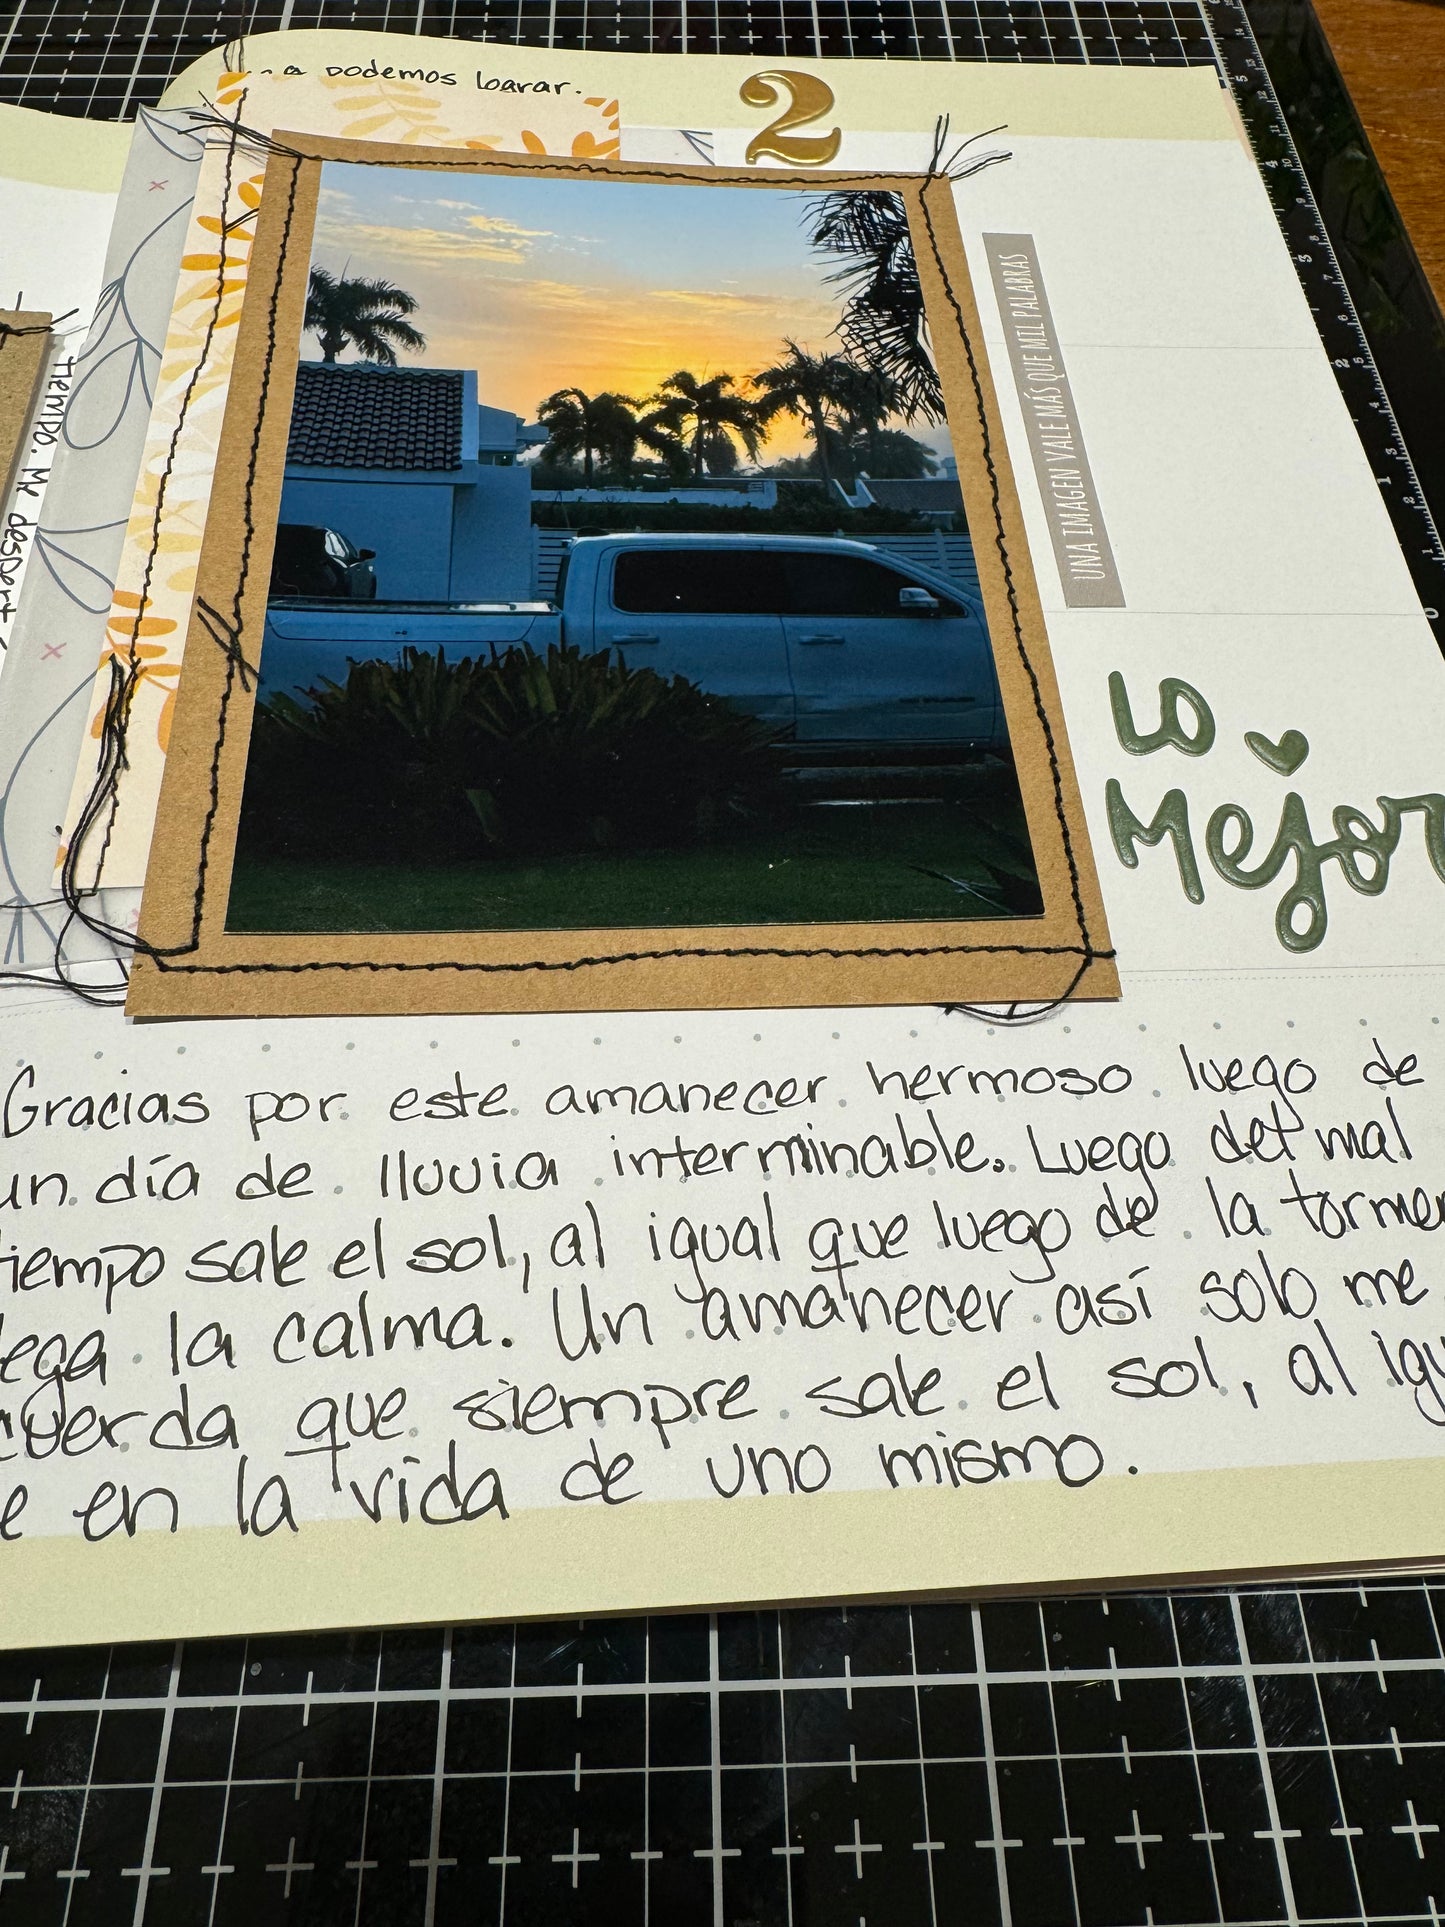 podemos lograr.
2
UNA IMAGEN VALE MÁS QUE MIL PALABRAS
tiempo. Me despert
LO
Mejor
Gracias por este amanecer hermoso luego de
un día de lluvia interminable. Luego del mal
tiempo sale el sol, al igual que luego de la tormen
lega la calma. Un amanecer así solo me
cuerda que siempre sale el sol, al igu
e en la vida de uno mismo.